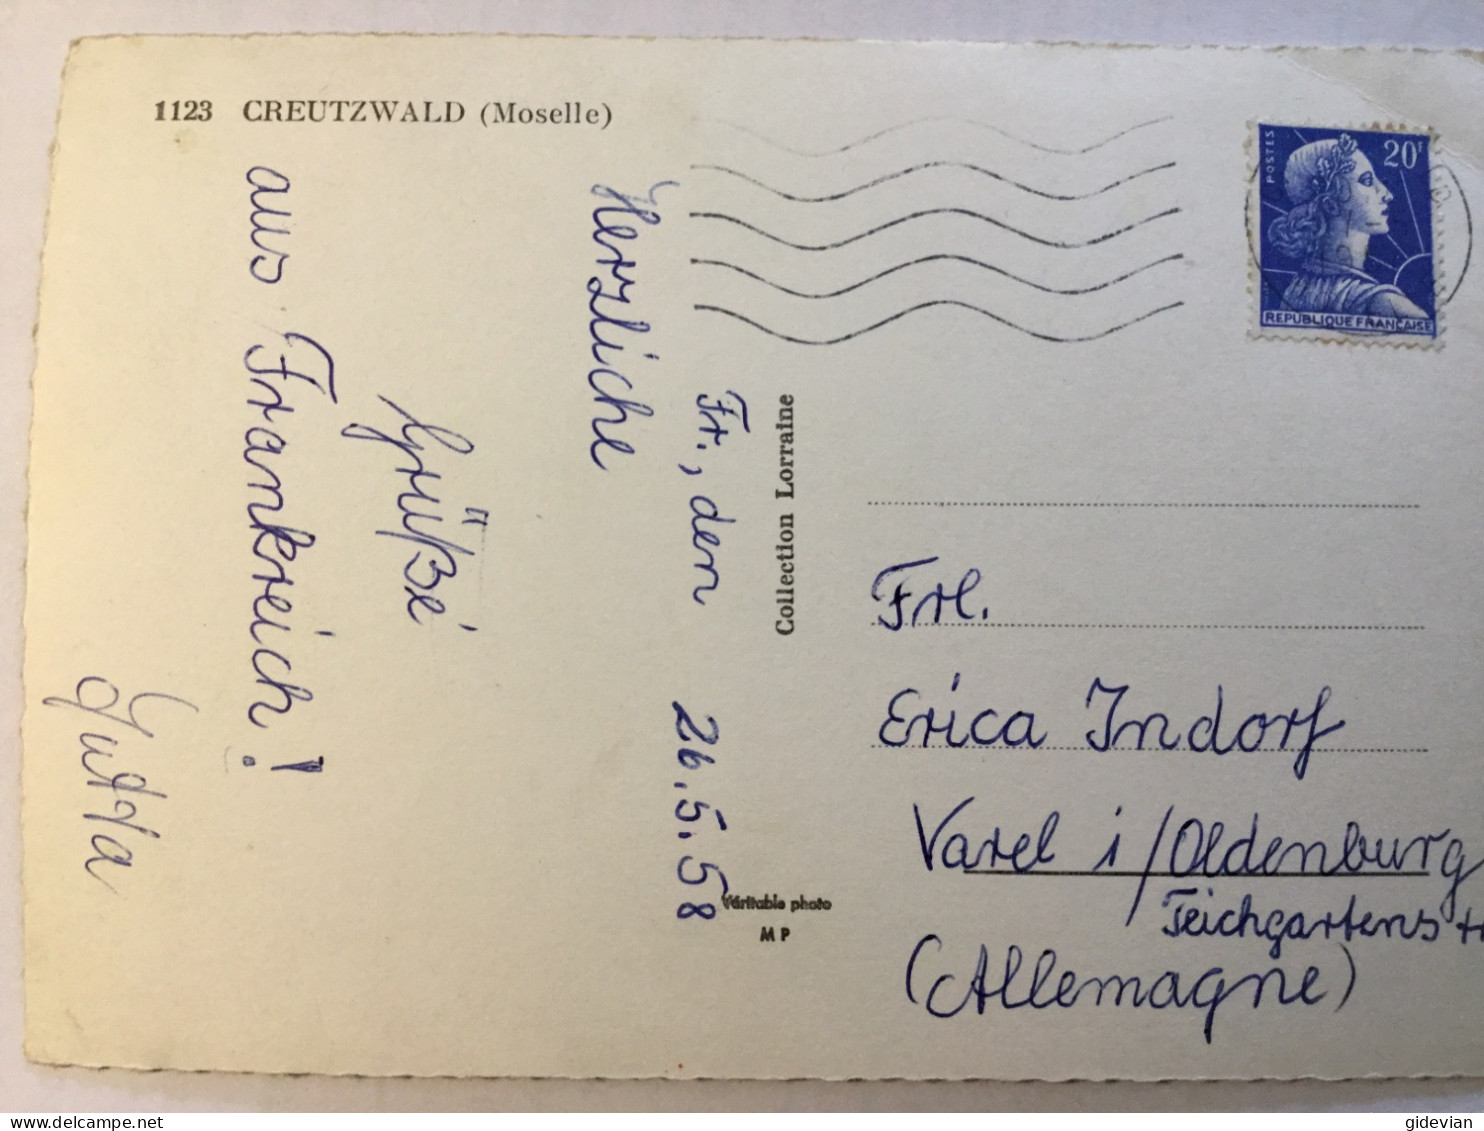 1123 CREUTZWALD (Moselle)
Fr., den 26.5.58
Herzliche
Grüße
aus Frankreich!
Jutta
Collection Lorraine
Véritable photo
M P
POSTES
20F
REPUBLIQUE FRANÇAISE
Frl.
Erica Indorf
Varel i/Oldenburg
Teichgartenstr
(Allemagne)
gidevian